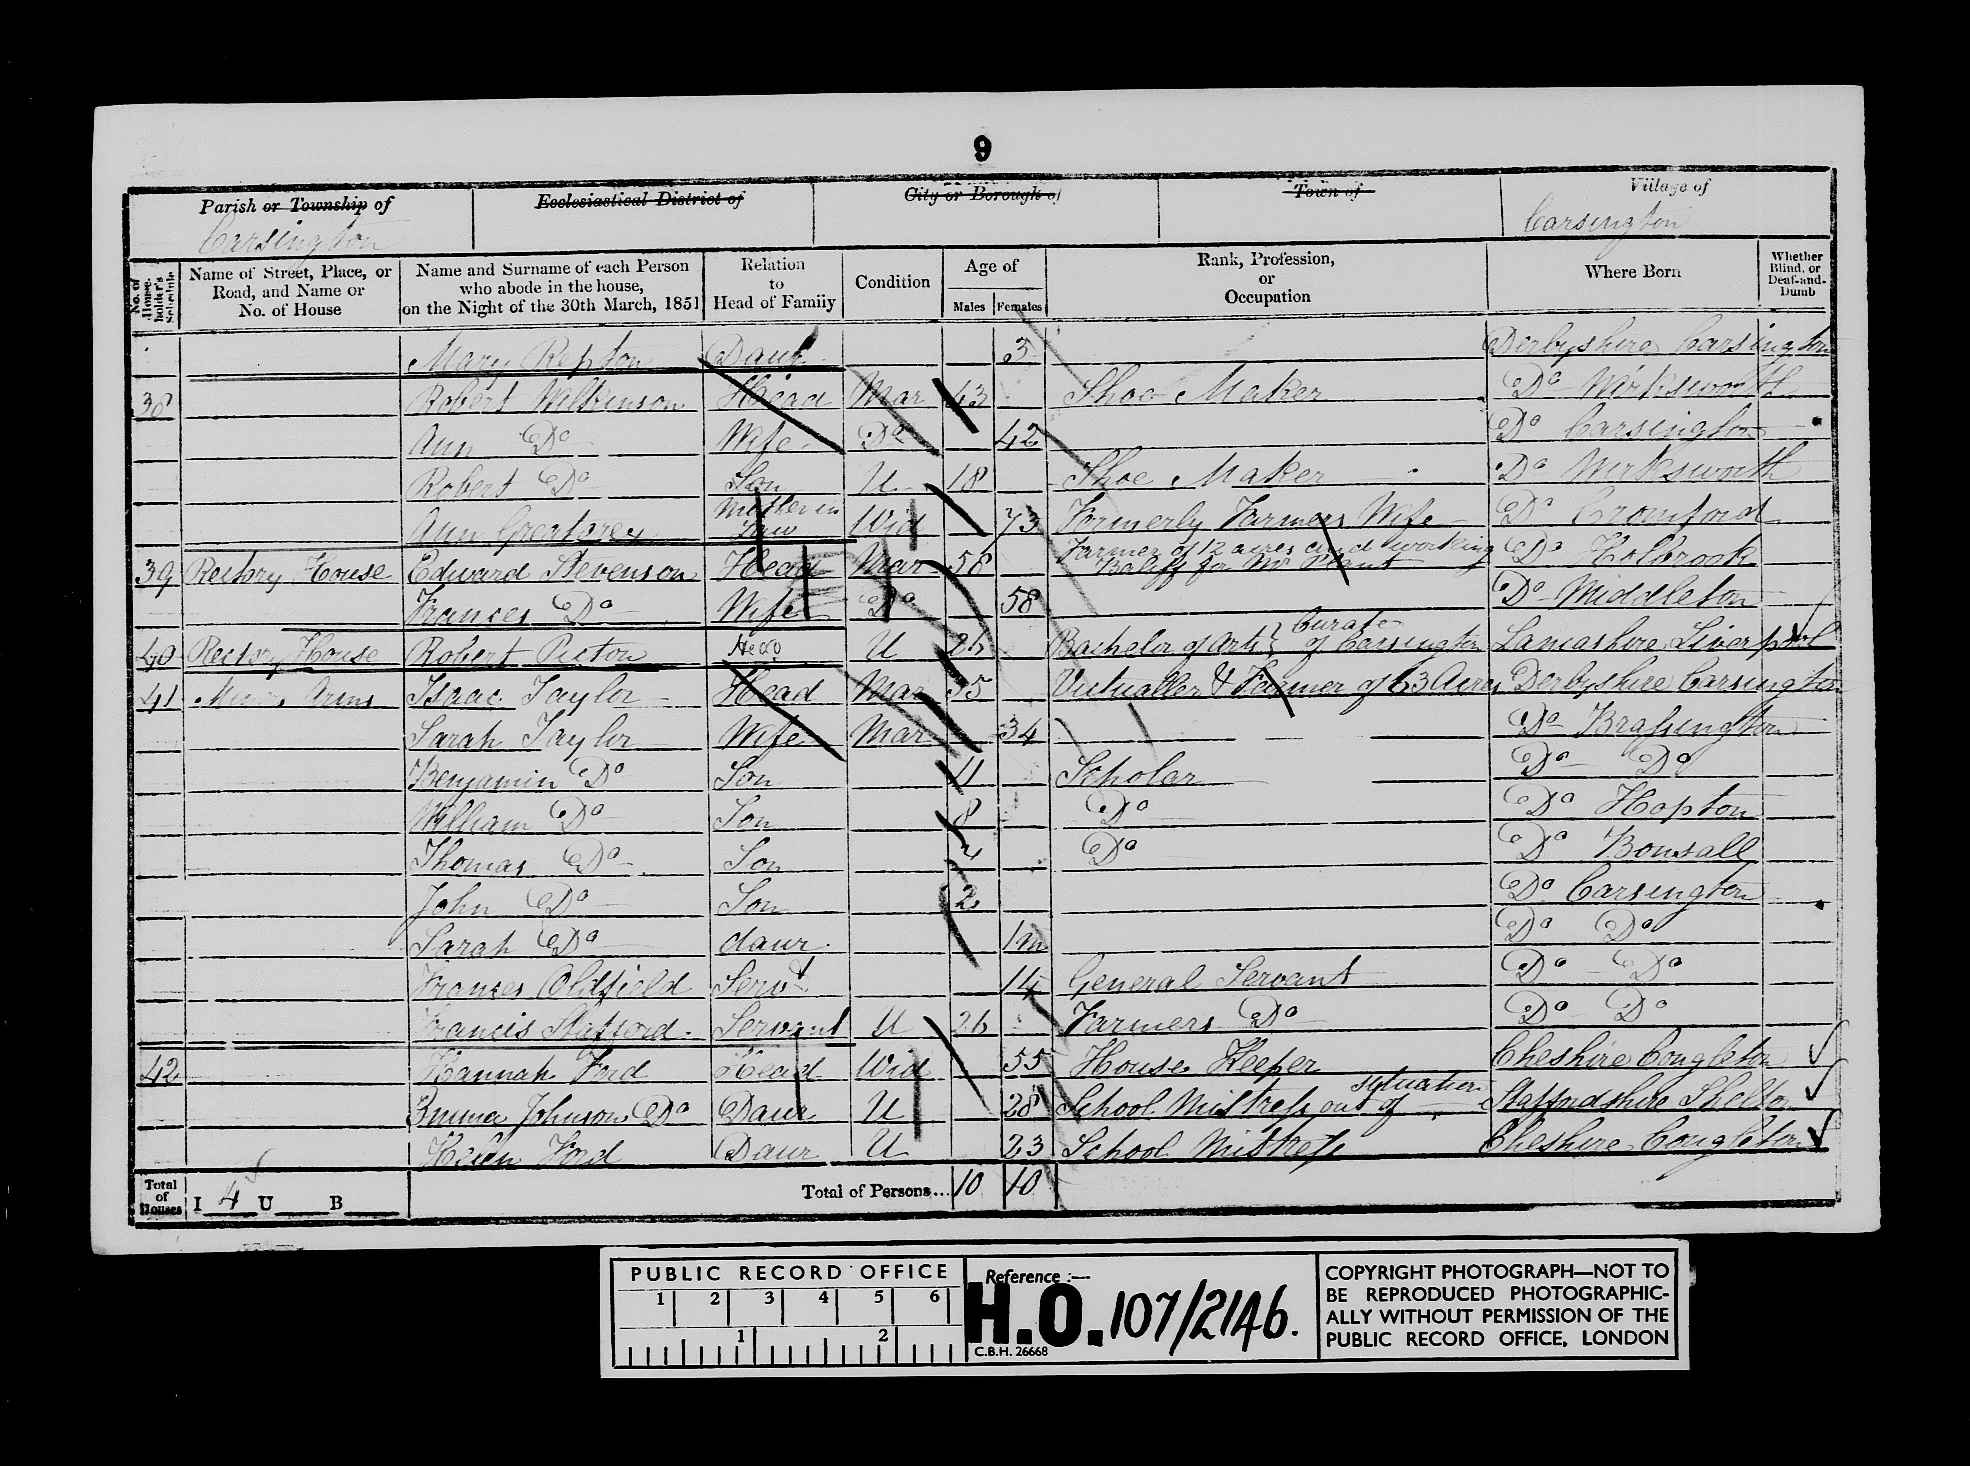 9
Parish or Township of
Ecclesiastical District of
City or Borough of
Town of
Village of
Carsington
Carsington
No. of House-holder's Schedule
Name of Street, Place, or Road, and Name or No. of House
Name and Surname of each Person who abode in the house, on the Night of the 30th March, 1851
Relation to Head of Family
Condition
Age of
Males
Females
Rank, Profession, or Occupation
Where Born
Whether Blind, or Deaf-and-Dumb
Mary Repton Daur 3 Derbyshire Carsington
38 Robert Wilkinson Head Mar 43 Shoe Maker Do Wirksworth
Ann Do Wife Do 42 Do Carsington
Robert Do Son U 18 Shoe Maker Do Wirksworth
Ann Greatorex Mother in Law Wid 73 Formerly Farmers Wife Do Cromford
39 Rectory House Edward Stevenson Head Mar 58 Farmer of 12 acres and working Baliff for Mr Do Holbrook
Frances Do Wife Do 58 Do Middleton
40 Rectory House Robert Picton Head U 26 Bachelor of Arts } Curate of Carsington Lancashire Liverpool
41 Arms Isaac Taylor Head Mar 35 Victualler & Farmer of 63 Acres Derbyshire Carsington
Sarah Taylor Wife Mar 34 Do Brassington
Benjamin Do Son 11 Scholar Do Do
William Do Son 8 Do Do Hopton
Thomas Do Son 4 Do Do Bonsall
John Do Son 2 Do Carsington
Sarah Do daur 1m Do Do
Frances Oldfield Servt 14 General Servant Do Do
Francis Stafford Servant U 26 Farmers Do Do Do
42 Hannah Ford Head Wid 55 House Keeper Cheshire Congleton
Emma Johnson Do Daur U 28 School Mistress out of situation Staffordshire Shelton
Helen Ford Daur U 23 School Mistress Cheshire Congleton
Total of Houses I 4 U B Total of Persons... 10 10
PUBLIC RECORD OFFICE
1 2 3 4 5 6
1 2
Reference :—
H.O. 107/2146.
C.B.H. 26668
COPYRIGHT PHOTOGRAPH—NOT TO
BE REPRODUCED PHOTOGRAPHIC-
ALLY WITHOUT PERMISSION OF THE
PUBLIC RECORD OFFICE, LONDON